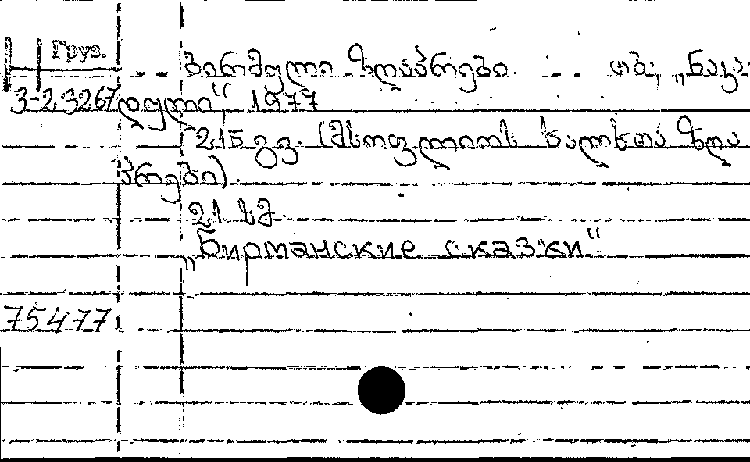 Груз.
ბირმული ზღაპრები. თბ., „ნაკა-
3-23267 დული“, 1977
215 გვ. (მსოფლიოს ხალხთა ზღა
პრები).
21 სმ
„Бирманские сказки“
75477